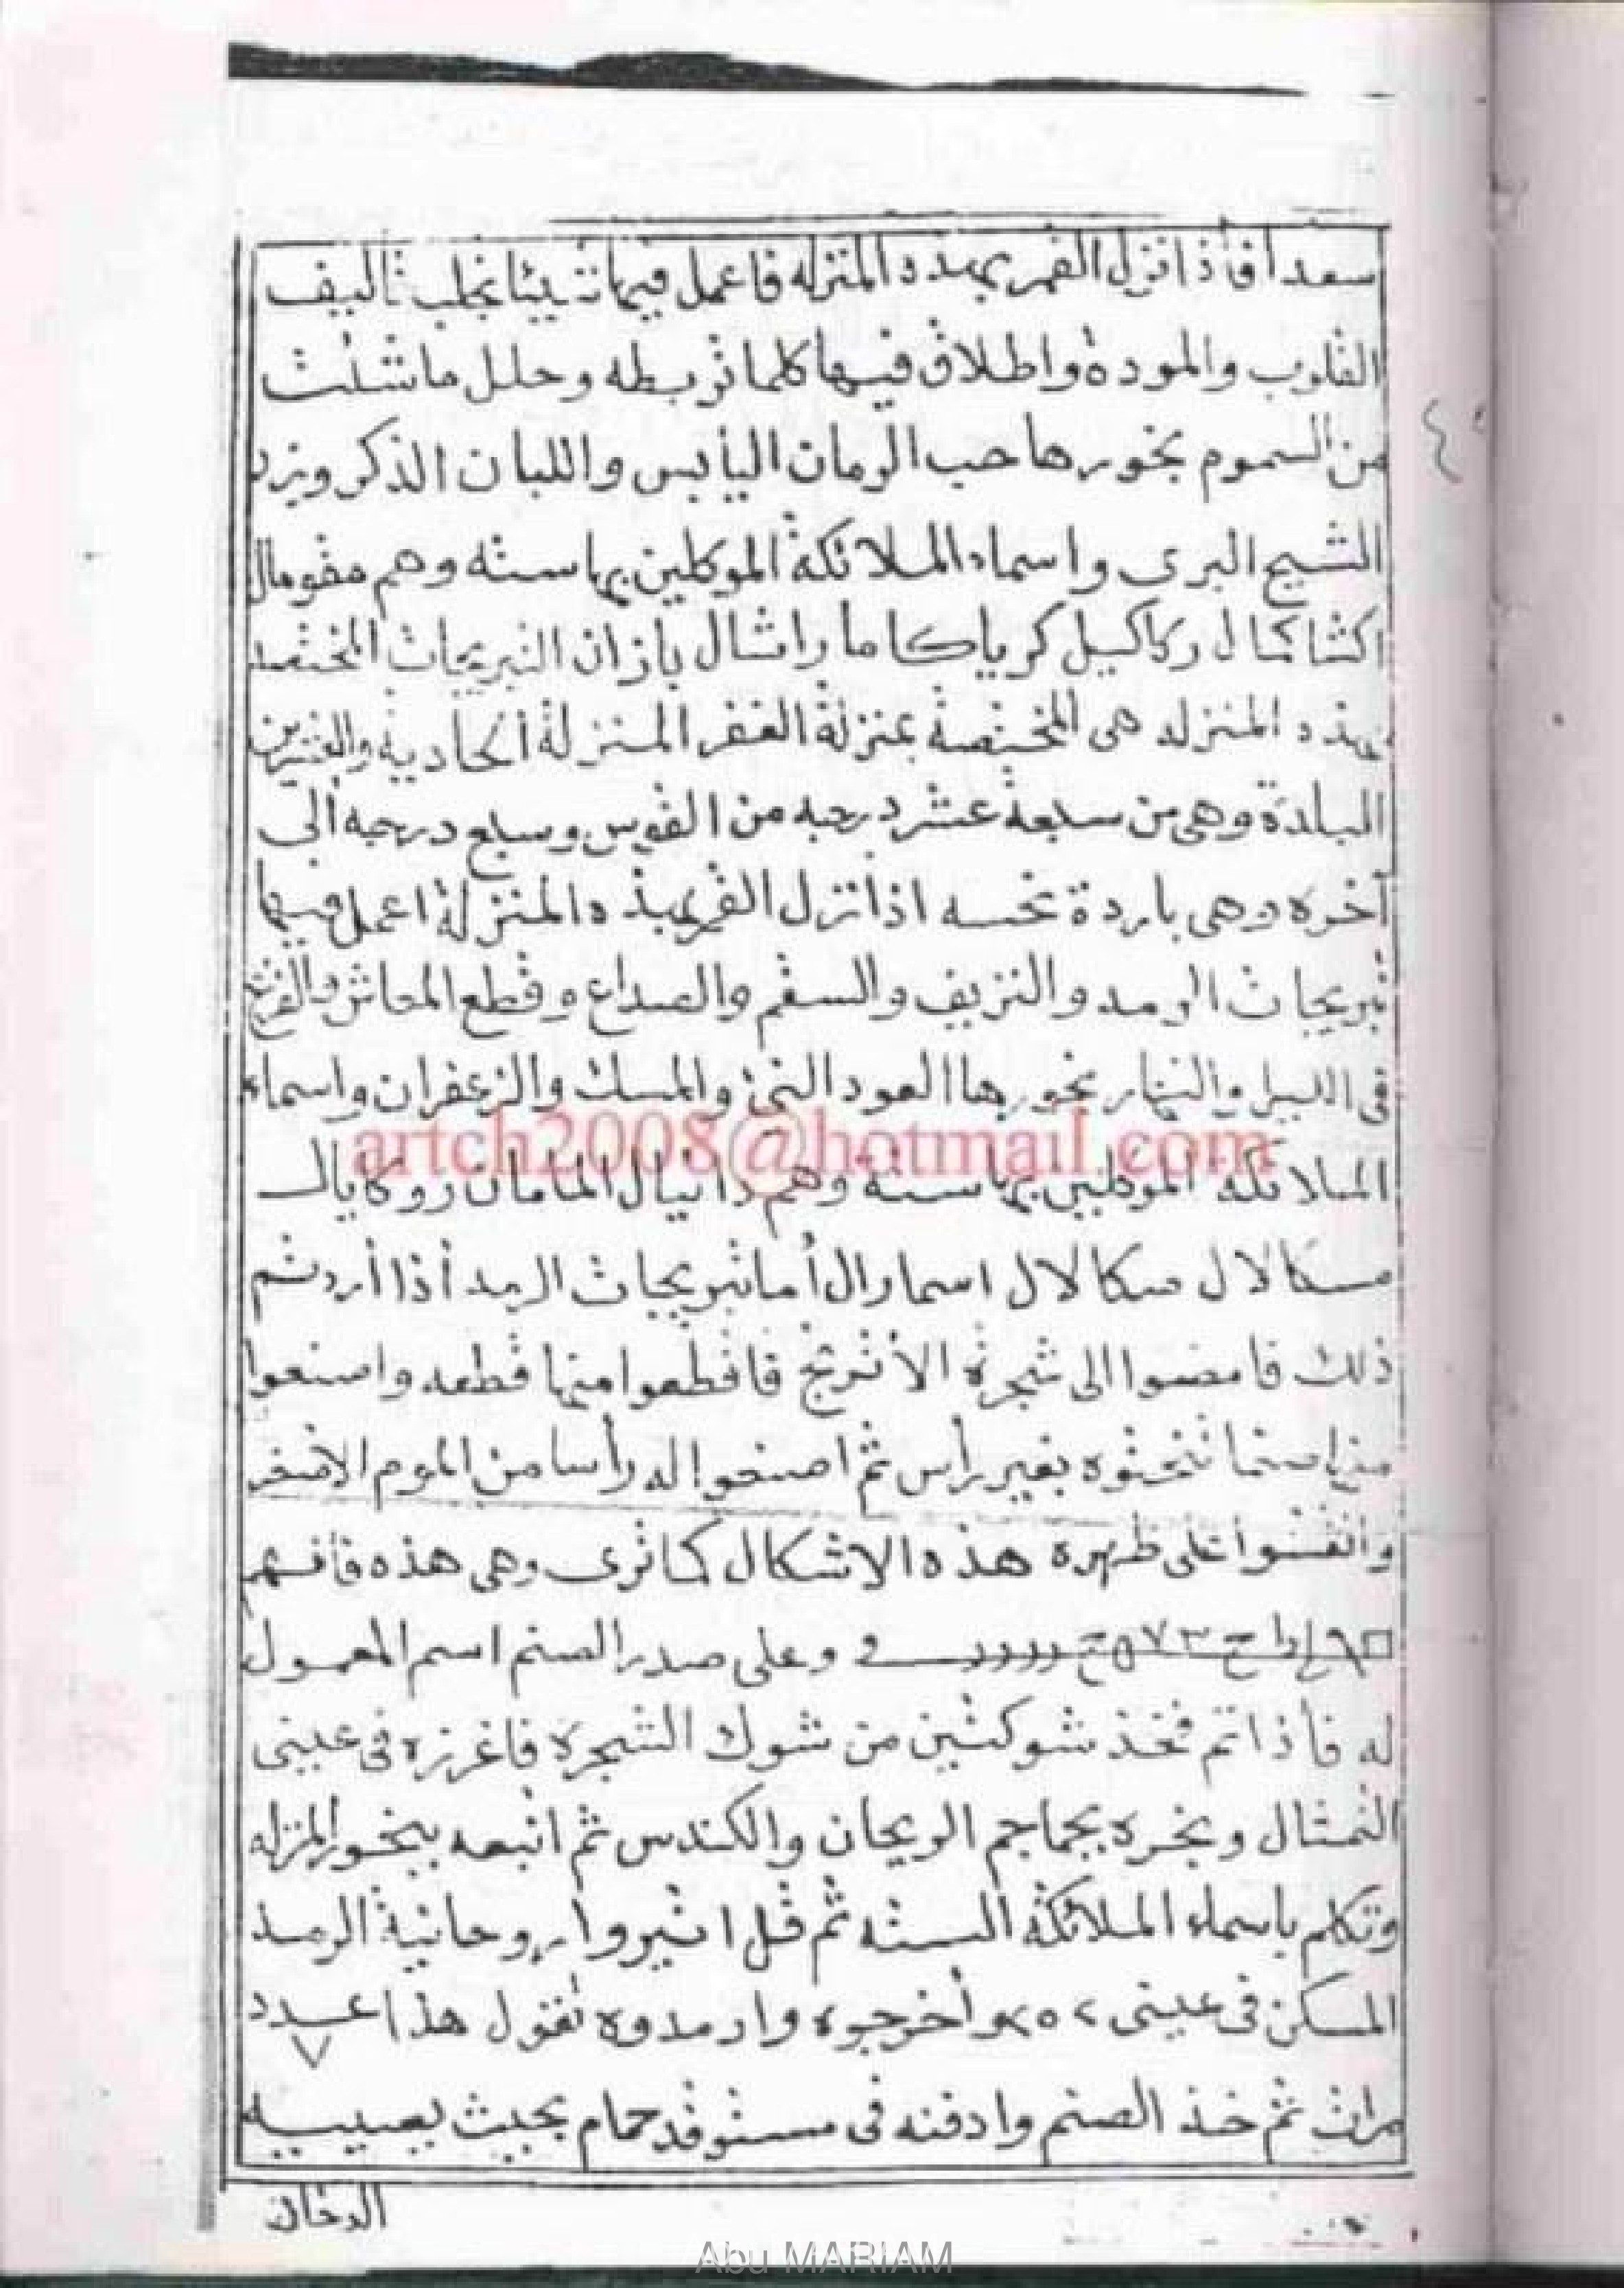 سعدا فأذا نزل القمر بهذه المنزله فاعمل فيها شيئا يجلب تأليف
القلوب والموده واطلاق فيها كلما تربطه وحلل ما شئت
من السموم بخورها حب الرمان اليابس واللبان الذكر وبزر
الشيح البرى واسماء الملائكة الموكلين بها سته وهم مقومال
اكشا كمال ركاكيل كرياكا ما راشال يازان النيريجات المختصه
بهذه المنزله هى المختصة بمنزلة الغفر المنزلة الحادية والعشرين
البلدة وهى من سبعة عشر درجه من القوس وسبع درجه ألى
أخره وهى باردة نحسه اذا نزل القمر بهذه المنزلة اعمل فيها
نيريجات الرمد والنزيف والسقم والصداع وقطع المعاش
فى الليل والنهار بخورها العود النئ والمسك والزعفران واسماء
artch2008@hotmail.com
الملائكه الموكلين بها سته وهم دانيال المامان روكايال
مسكالال صكالال اسمارال أما نيريجات الرمد أذا أردتم
ذلك فامضوا الى شجرة الأترنج فاقطعوا منها قطعه واصنعوا
منها صنما تنحتوه بغير رأس ثم اصنعوا له رأسا من الموم الأصفر
وانقشوا على ظهره هذه الاشكال كما ترى وهى هذه فأفهم
وعلى صدر الصنم اسم المعمول
له فأذا تم فخذ شوكتين من شوك الشجرة فاغرزه فى عينى
التمثال وبخره بجماجم الريحان والكندس ثم اتبعه ببخور المنزله
وتكلم باسماء الملائكة السته ثم قل انيروا روحانية الرمد
المسكن فى عينى وأخرجوه وارمدوه تقول هذا عدد
٧
مرات ثم خذ الصنم وادفنه فى مستوقد حمام بحيث يصيبه
الدخان
Abu MARIAM